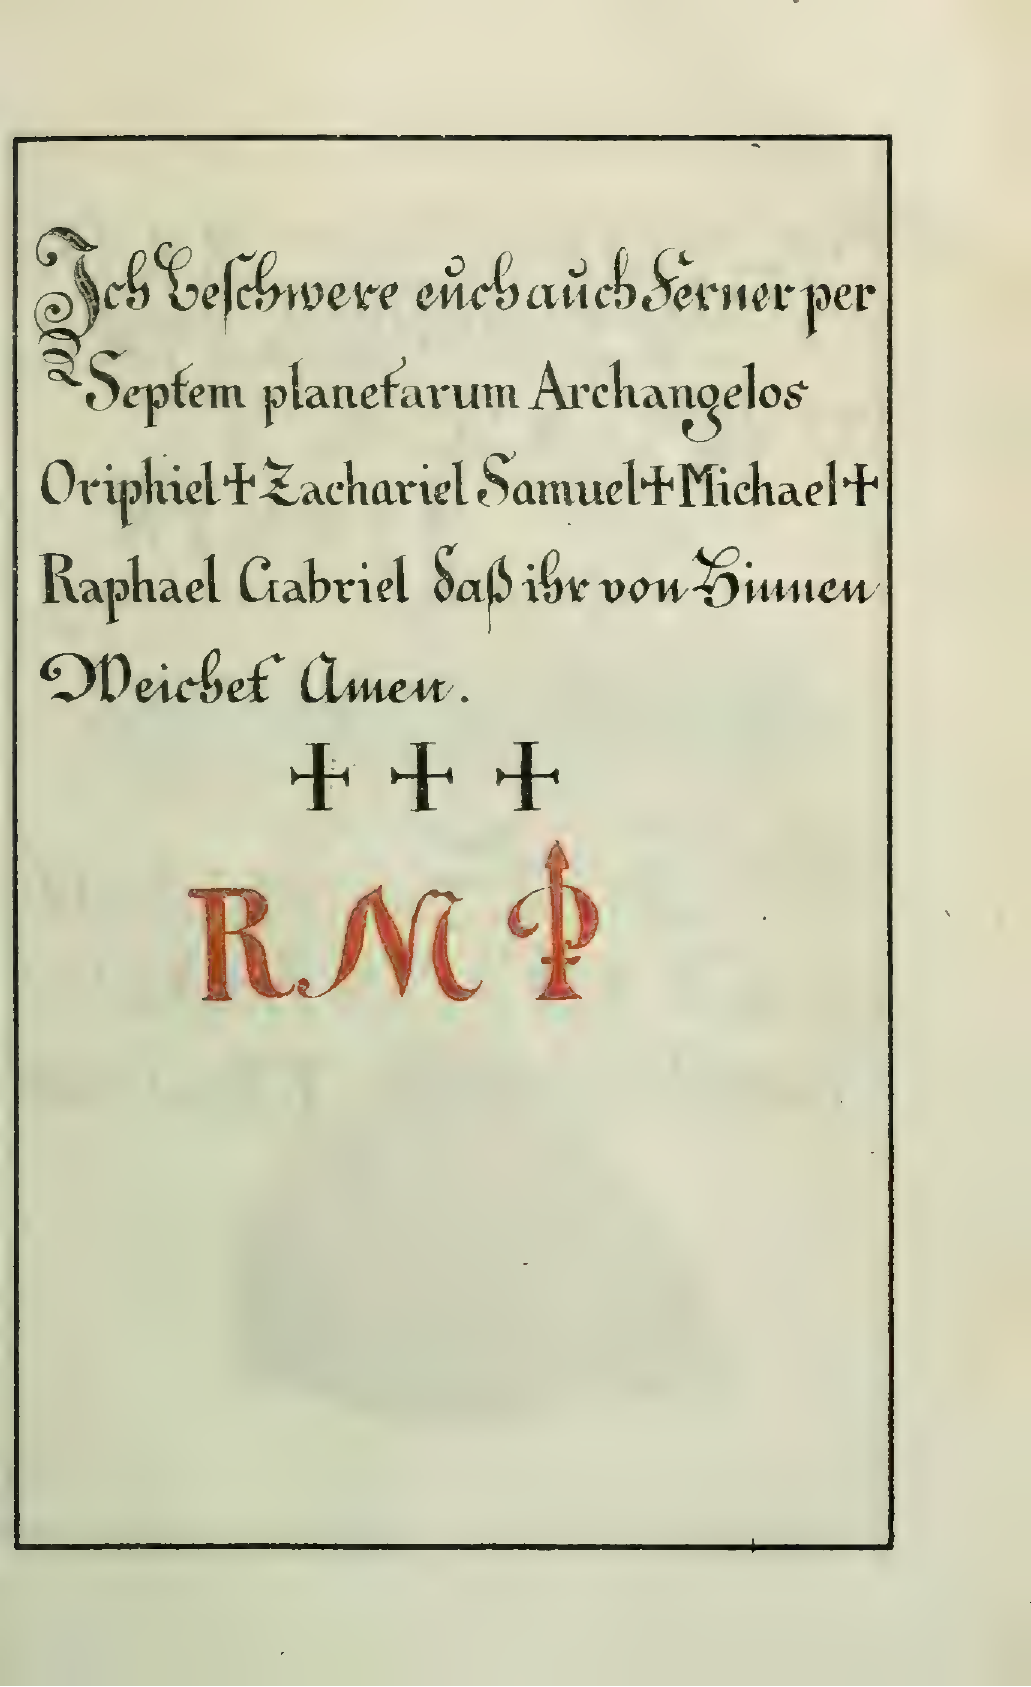 Ich Beschwere euch auch Ferner per
Septem planetarum Archangelos
Oriphiel + Zachariel Samuel + Michael +
Raphael Gabriel daß ihr von Hinnen
Weichet Amen.
+ + +
R M P